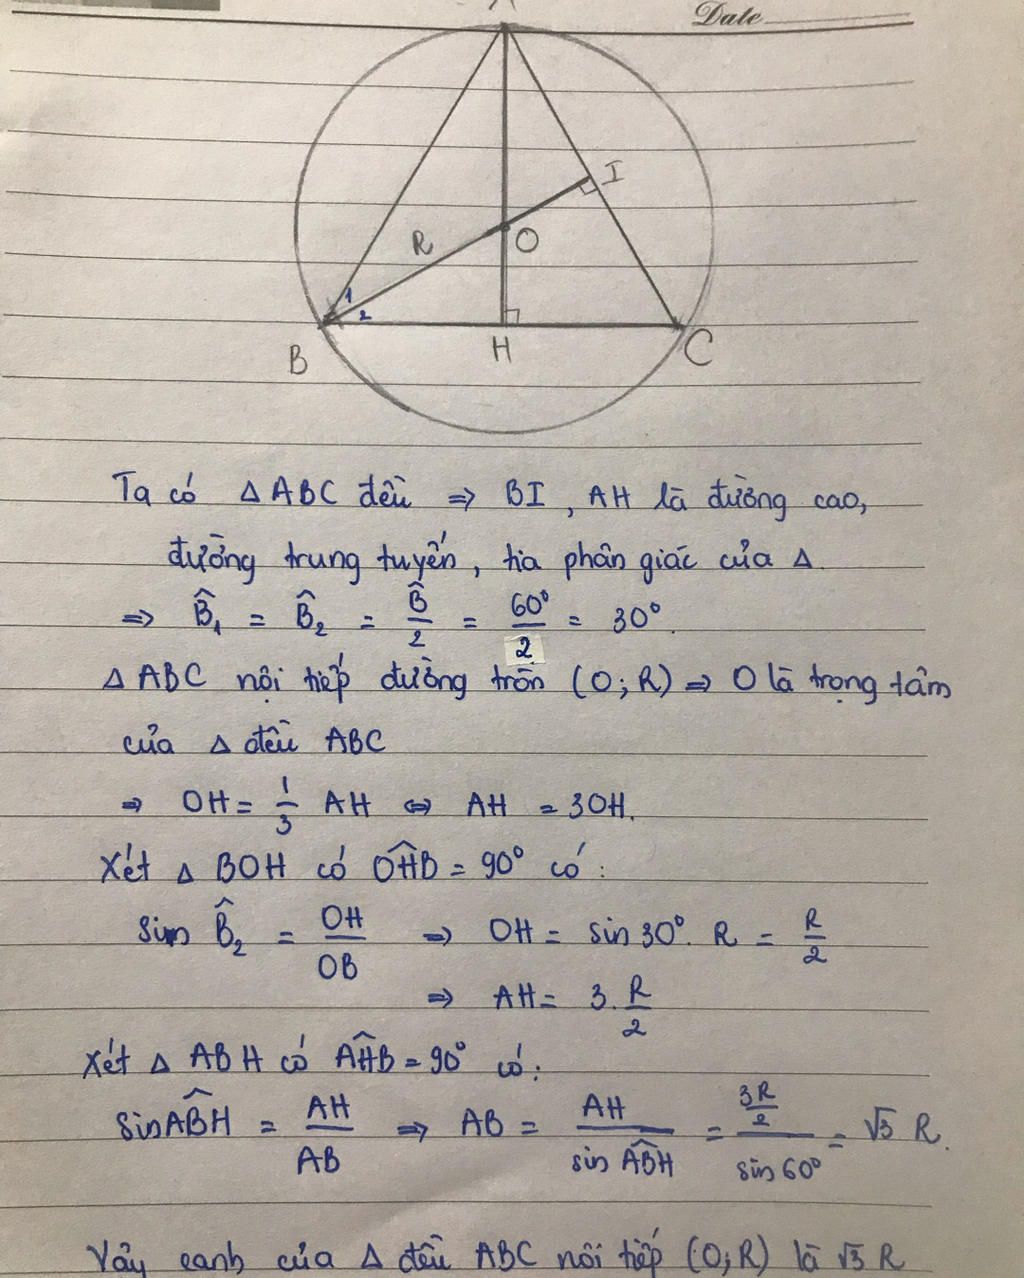 Date
A
I
R
O
1
2
B
H
C
Ta có Δ ABC đều ⇒ BI, AH là đường cao,
đường trung tuyến, tia phân giác của Δ.
⇒ B̂₁ = B̂₂ = B̂/2 = 60°/2 = 30°.
Δ ABC nội tiếp đường tròn (O; R) ⇒ O là trọng tâm
của Δ đều ABC
⇒ OH = 1/3 AH ⇔ AH = 3OH.
Xét Δ BOH có OĤB = 90° có:
Sin B̂₂ = OH/OB ⇒ OH = sin 30°. R = R/2
⇒ AH = 3. R/2
Xét Δ ABH có AĤB = 90° có:
Sin AB̂H = AH/AB ⇒ AB = AH/sin AB̂H = (3R/2)/sin 60° = √3 R.
Vậy cạnh của Δ đều ABC nội tiếp (O; R) là √3 R